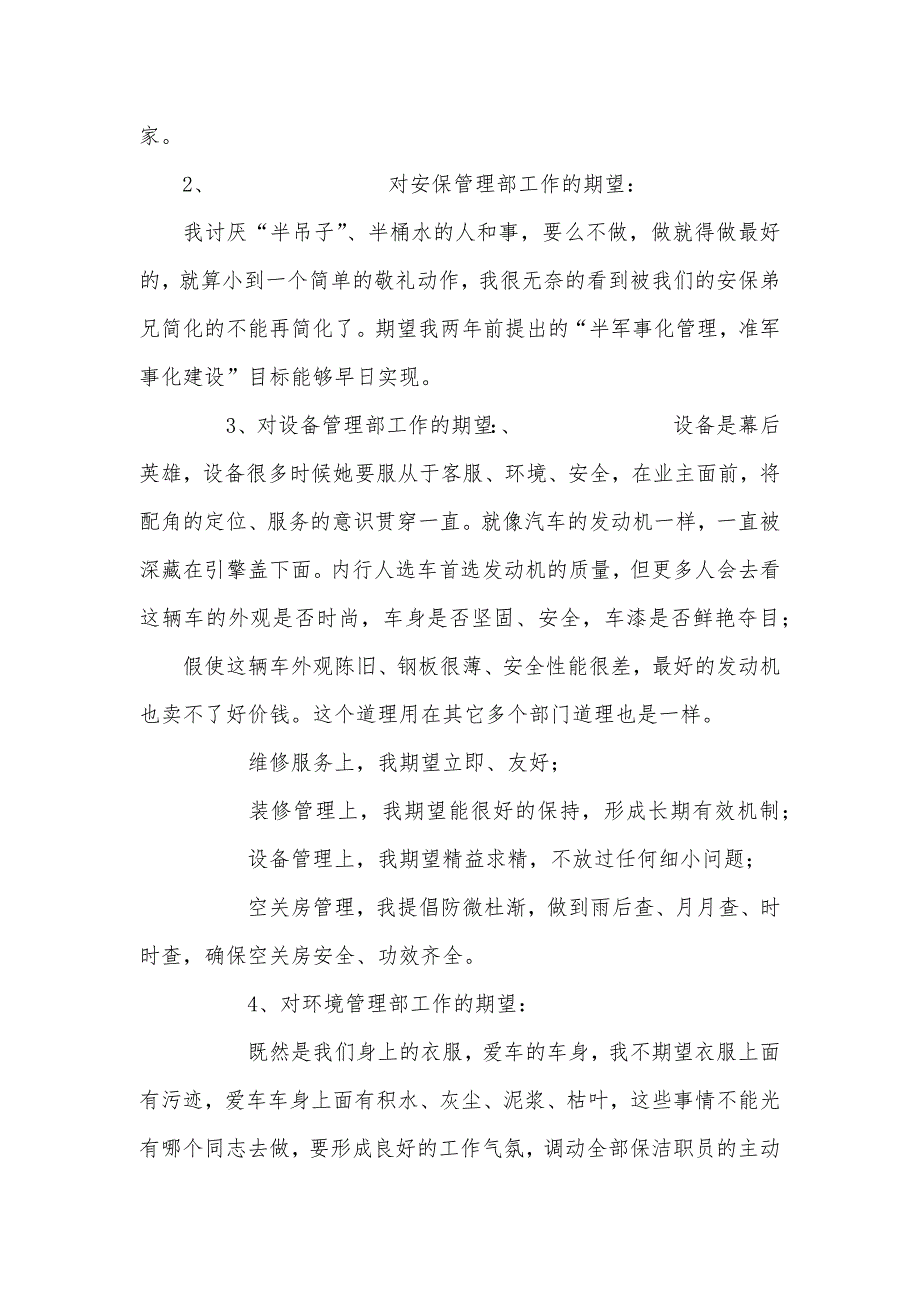 家。
2、 对安保管理部工作的期望：
我讨厌“半吊子”、半桶水的人和事，要么不做，做就得做最好
的，就算小到一个简单的敬礼动作，我很无奈的看到被我们的安保弟
兄简化的不能再简化了。期望我两年前提出的“半军事化管理，准军
事化建设”目标能够早日实现。
3、对设备管理部工作的期望：、 设备是幕后
英雄，设备很多时候她要服从于客服、环境、安全，在业主面前，将
配角的定位、服务的意识贯穿一直。就像汽车的发动机一样，一直被
深藏在引擎盖下面。内行人选车首选发动机的质量，但更多人会去看
这辆车的外观是否时尚，车身是否坚固、安全，车漆是否鲜艳夺目；
假使这辆车外观陈旧、钢板很薄、安全性能很差，最好的发动机
也卖不了好价钱。这个道理用在其它多个部门道理也是一样。
维修服务上，我期望立即、友好；
装修管理上，我期望能很好的保持，形成长期有效机制；
设备管理上，我期望精益求精，不放过任何细小问题；
空关房管理，我提倡防微杜渐，做到雨后查、月月查、时
时查，确保空关房安全、功效齐全。
4、对环境管理部工作的期望：
既然是我们身上的衣服，爱车的车身，我不期望衣服上面
有污迹，爱车车身上面有积水、灰尘、泥浆、枯叶，这些事情不能光
有哪个同志去做，要形成良好的工作气氛，调动全部保洁职员的主动